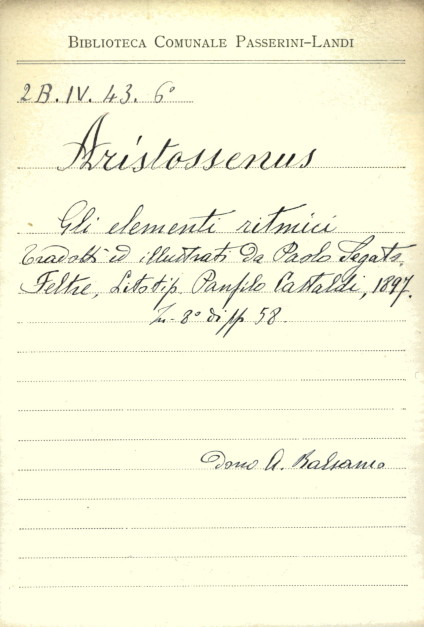 BIBLIOTECA COMUNALE PASSERINI-LANDI
2B. IV. 43. 6°
Aristossenus
Gli elementi ritmici
tradotti ed illustrati da Paolo Segato
Feltre, Litotip. Panfilo Castaldi, 1897.
In-8° di pp 58.
Dono A. Balsamo